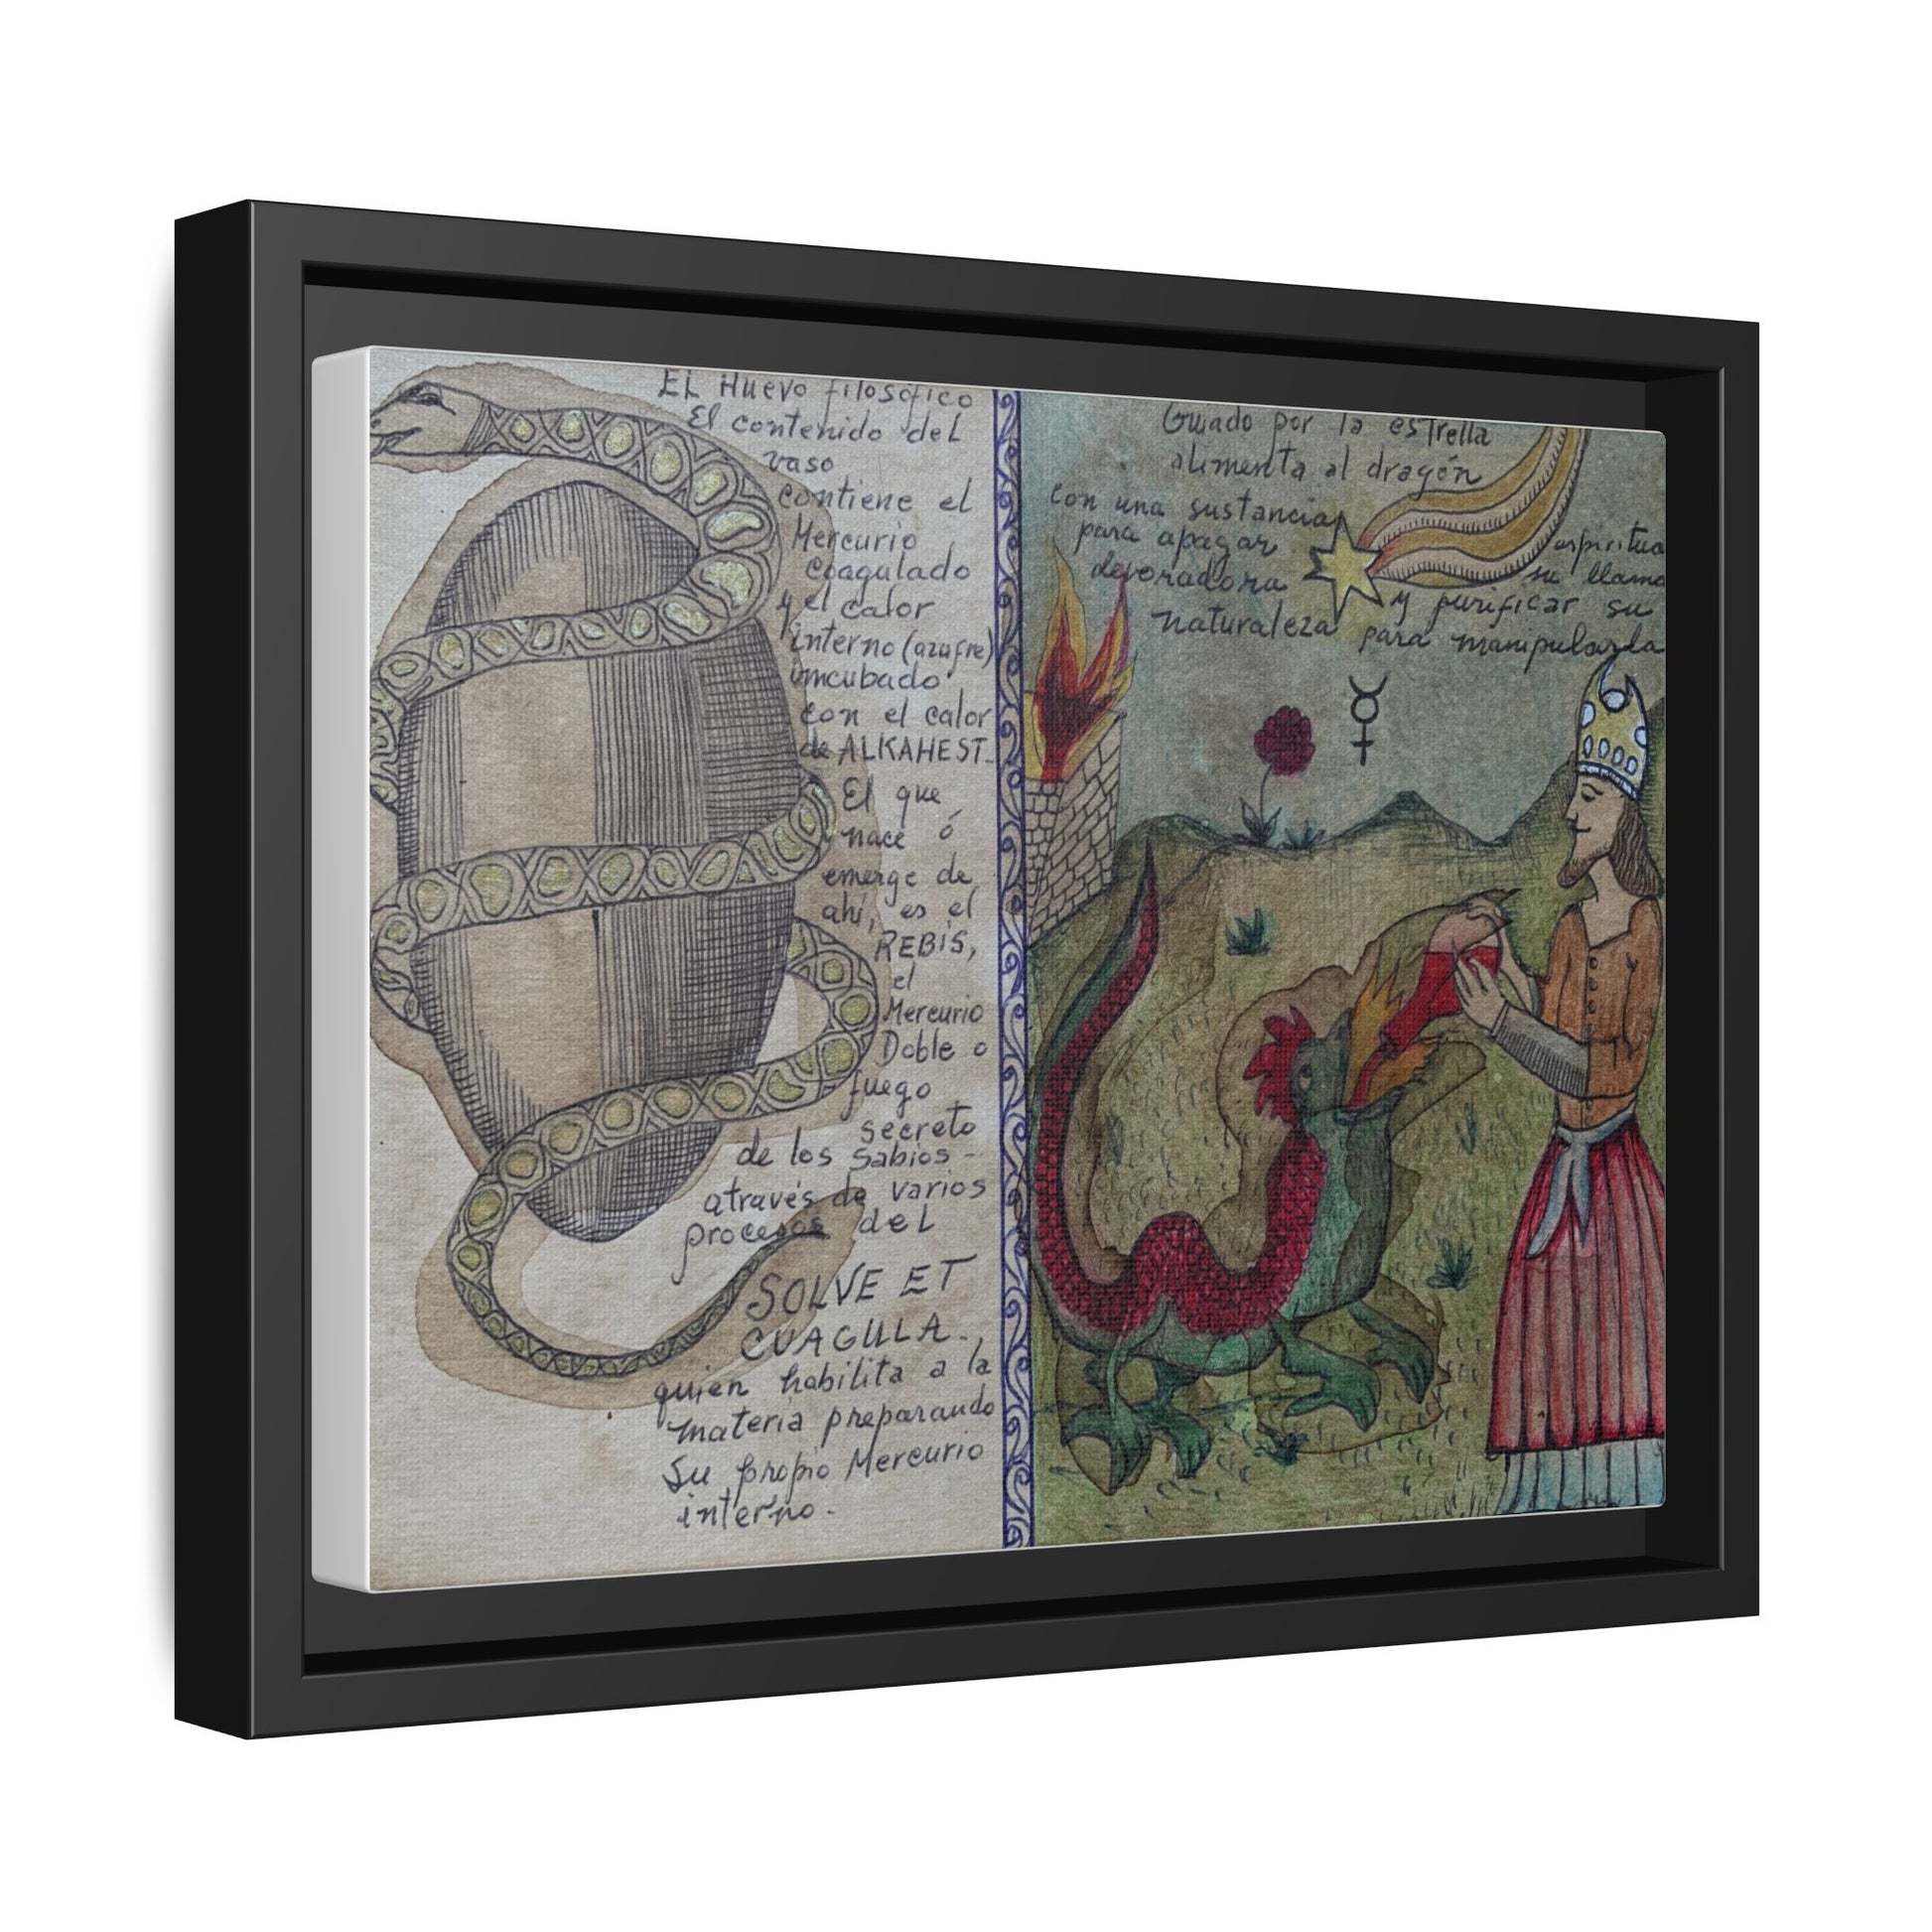 EL Huevo filosófico
El contenido del
vaso
contiene el
Mercurio
coagulado
y el calor
interno (azufre)
incubado
con el calor
de ALKAHEST-
El que
nace ó
emerge de
ahí, es el
REBIS,
el
Mercurio
Doble o
fuego
secreto
de los Sabios-
através de varios
procesos del
SOLVE ET
CUAGULA.,
quien habilita a la
materia preparando
su propio Mercurio
interno.
Guiado por la estrella
alimenta al dragón
con una sustancia espiritua
para apagar su llama
devoradora y purificar su
naturaleza para manipularla